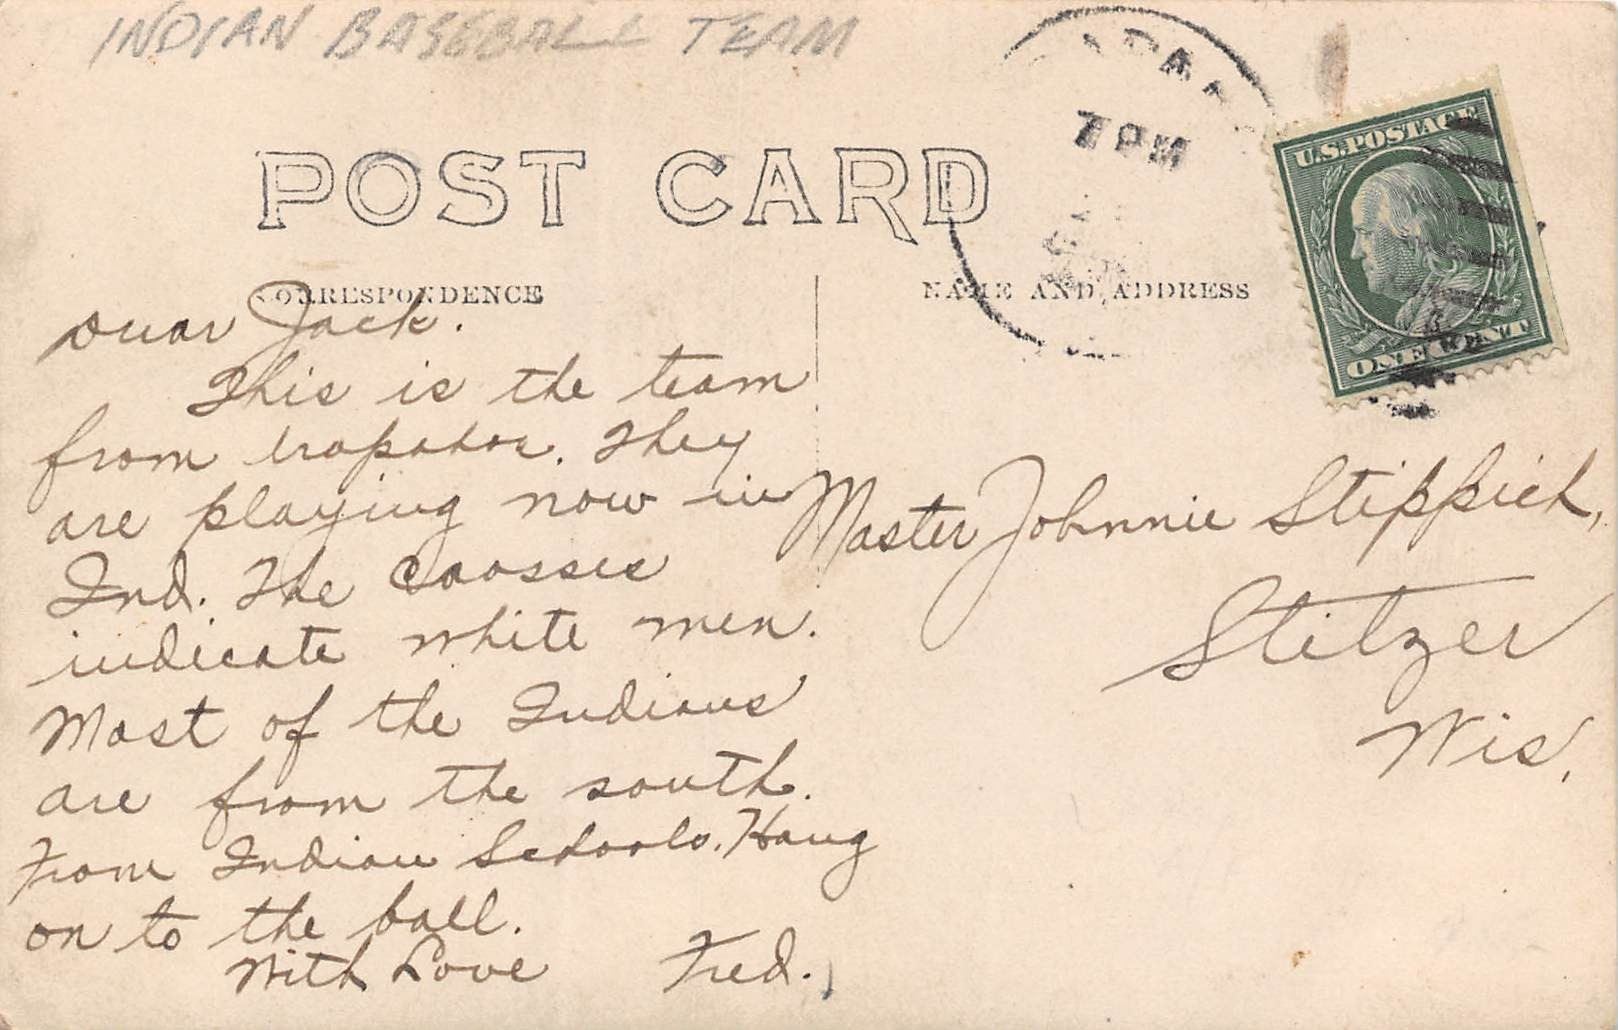 INDIAN BASEBALL TEAM
7 PM
U.S. POSTAGE
ONE CENT
POST CARD
CORRESPONDENCE
NAME AND ADDRESS
Dear Jack.
This is the team
from. They
are playing now in
Ind. The Crosses
indicate white men.
Most of the Indians
are from the south.
From Indian Schools. Hang
on to the ball.
With Love Fred.
Master Johnnie Stippich,
Stitzer
Wis.